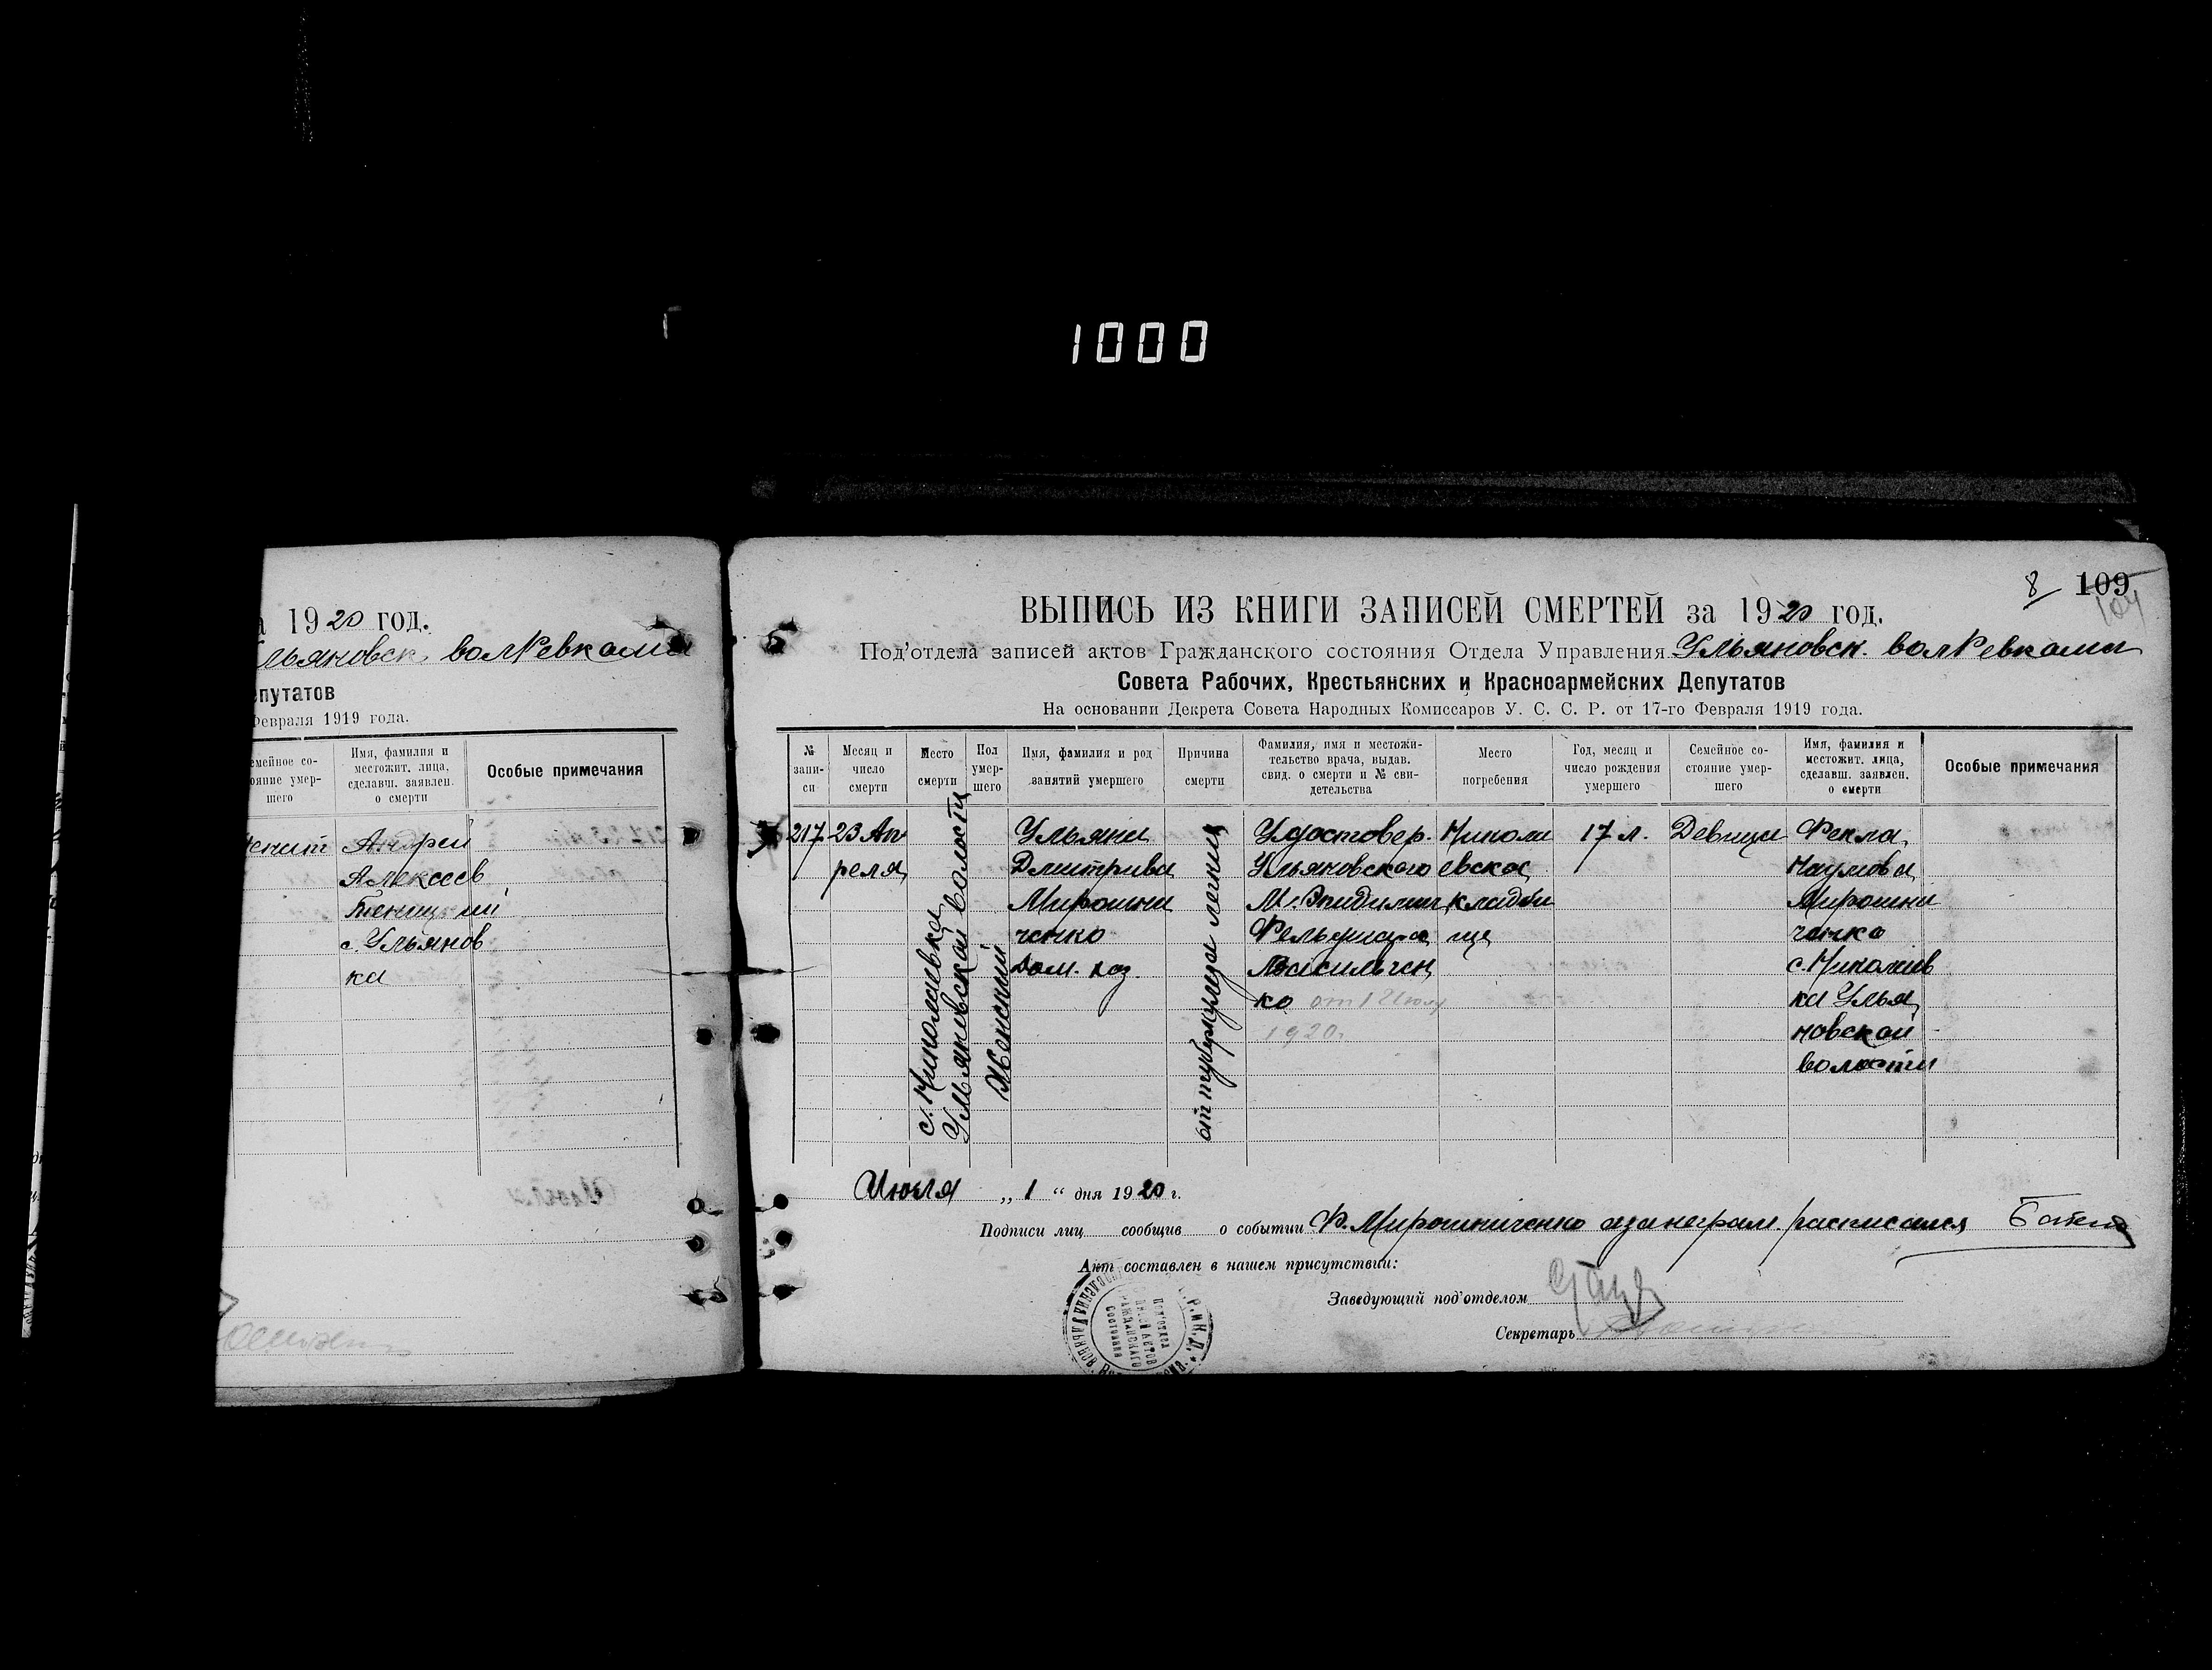 1000
19 20 год.
льяновск. волРевкома
епутатов
Февраля 1919 года.
емейное со-
ояние умер-
шего
Имя, фамилия и
местожит. лица,
сделавш. заявлен.
о смерти
Особые примечания
Андрей
Алексеев
с. Ульянов
ка
8 109
104
ВЫПИСЬ ИЗ КНИГИ ЗАПИСЕЙ СМЕРТЕЙ за 1920 год.
Под'отдела записей актов Гражданского состояния Отдела Управления Ульяновск. волРевкома
Совета Рабочих, Крестьянских и Красноармейских Депутатов
На основании Декрета Совета Народных Комиссаров У. С. С. Р. от 17-го Февраля 1919 года.
№
запи-
си
Месяц и
число
смерти
Место
смерти
Пол
умер-
шего
Имя, фамилия и род
занятий умершего
Причина
смерти
Фамилия, имя и местожи-
тельство врача, выдав.
свид. о смерти и № сви-
детельства
Место
погребения
Год, месяц и
число рождения
умершего
Семейное со-
стояние умер-
шего
Имя, фамилия и
местожит. лица,
сделавш. заявлен.
о смерти
Особые примечания
217
23 Ап
реля
с. Николаевка
Ульяновской волости
Женский
Ульяна
Дмитриева
Мирошни
ченко
Дом. хоз.
от туберкулеза легких
Удостовер.
Ульяновского
М. Эпидемич
Фельдшера
Васильчен
ко от 1 Июля
1920.
Никола
евское
кладби
ще
17 л.
Девица
Фекла
Наумова
Мирошни
ченко
с. Николаев
ка Улья
новской
волости
Июля „ 1 “ дня 1920 г.
Подписи лиц сообщив о событии Ф. Мирошниченко а за неграм. расписался
Акт составлен в нашем присутствии:
Заведующий под'отделом
Секретарь